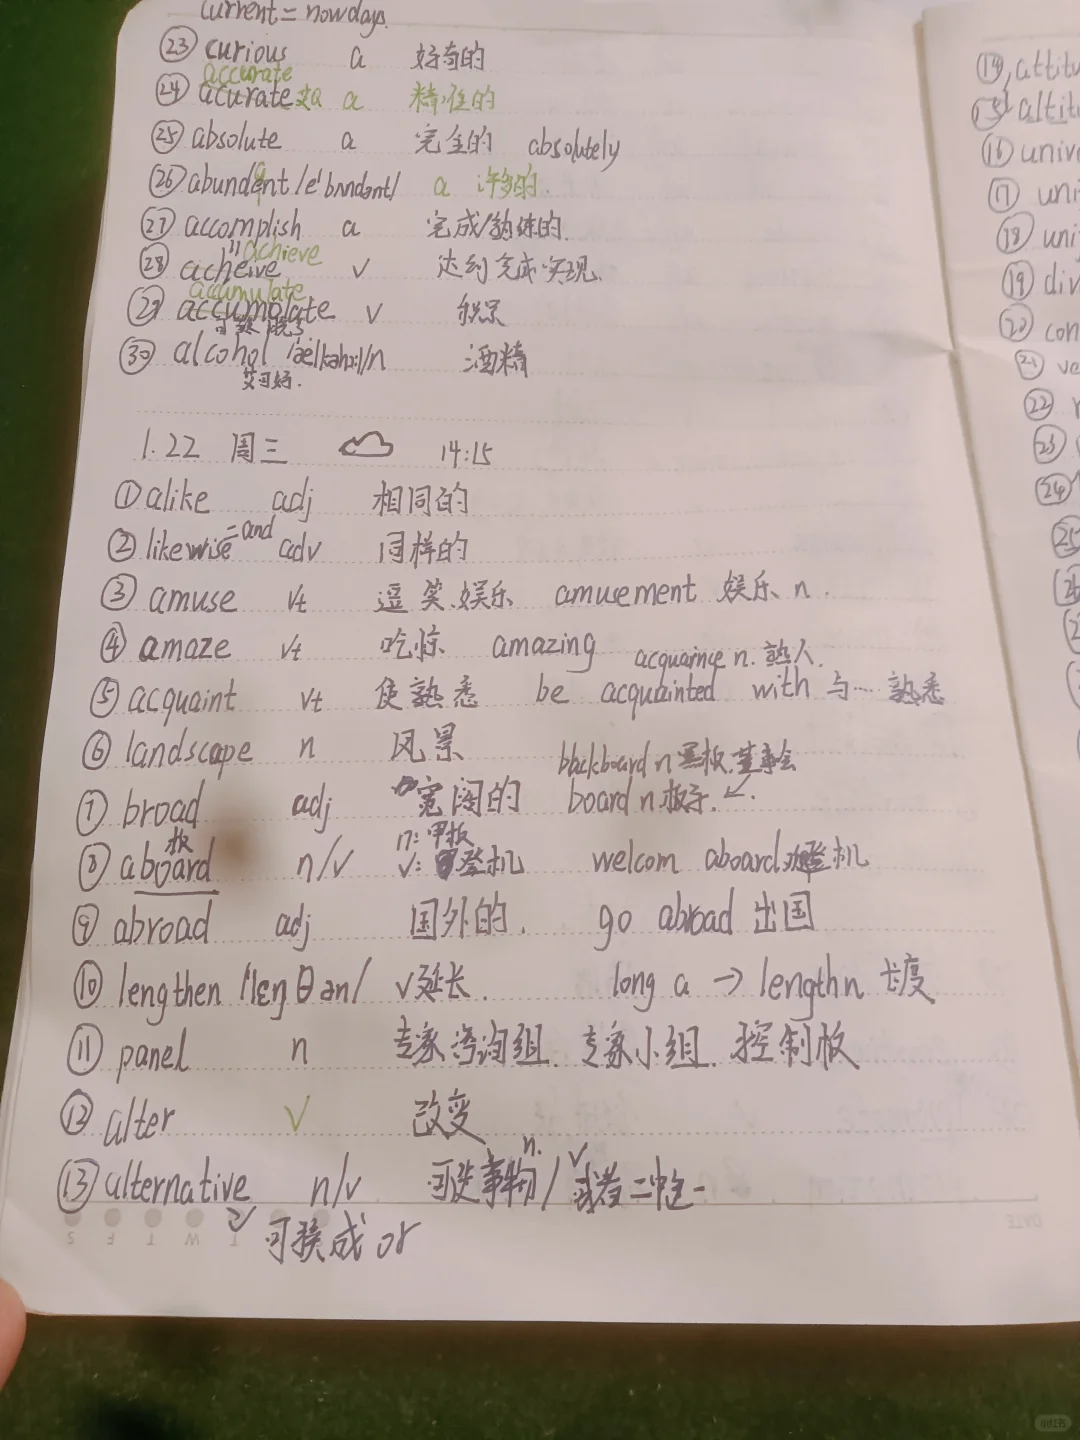 current = nowdays.
㉓ curious a 好奇的
accurate
㉔ acurate a 精准的
㉕ absolute a 完全的 absolutely
a
㉖ abundent /e'bʌndənt/ a 许多的.
㉗ accomplish a 完成/熟练的.
" achieve
㉘ acheive v 达到 完成 实现.
accumulate
㉙ accumolate v 积累
㉚ alcohol n 酒精
1.22 周三 14:15
① alike adj 相同的
= and
② likewise adv 同样的
③ amuse vt 逗笑.娱乐 amusement 娱乐 n.
④ amaze vt 吃惊 amazing
n. 熟人.
⑤ acquaint vt 使熟悉 be acquainted with 与… 熟悉
⑥ landscape n 风景
n 黑板.董事会
⑦ broad adj 宽阔的 board n.板子.↙.
板 n: 甲板
⑧ aboard n/v v: 登机 welcom aboard 登机
⑨ abroad adj 国外的. go abroad 出国
⑩ lengthen /'lɛŋθən/ v 延长. long a → length n 长度
⑪ panel n 专家咨询组. 专家小组. 控制板
⑫ alter v 改变
n. v
⑬ alternative n/v 可选事物/ 或者二中选一
可换成 or
S F T W T
DATE
⑭, attitu
⑮ altit
⑯ univ
⑰ uni
⑱ uni
⑲ div
⑳ con
㉑ ve
㉒
㉓
㉔
㉕
小红书